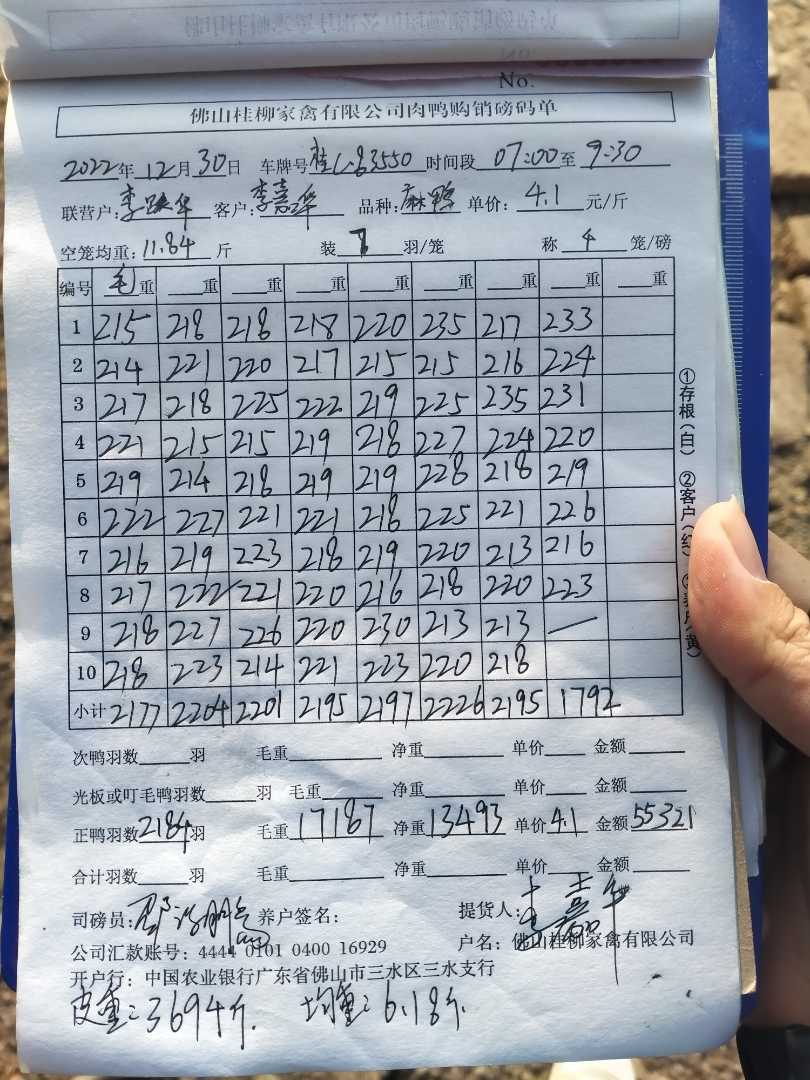 No.
佛山桂柳家禽有限公司肉鸭购销磅码单
2022年 12月30日 车牌号 3550 时间段 07:00至 9:30
联营户: 李 华 客户: 李嘉华 品种: 麻鸭 单价: 4.1 元/斤
空笼均重: 11.84 斤 装 8 羽/笼 称 4 笼/磅
编号 毛重 重 重 重 重 重 重 重 重
1 215 218 218 218 220 235 217 233
2 214 221 220 217 215 215 216 224
3 217 218 225 222 219 225 235 231
4 221 215 215 219 218 227 224 220
5 219 214 218 219 219 228 218 219
6 222 227 221 221 218 225 221 226
7 216 219 223 218 219 220 213 216
8 217 222 221 220 216 218 220 223
9 218 227 226 220 230 213 213 —
10 218 223 214 221 223 220 218
小计 2177 2204 2201 2195 2197 2226 2195 1792
次鸭羽数 羽 毛重 净重 单价 金额
光板或叮毛鸭羽数 羽 毛重 净重 单价 金额
正鸭羽数2184羽 毛重 17187 净重 13493 单价 4.1 金额 55321
合计羽数 羽 毛重 净重 单价 金额
司磅员: 养户签名: 提货人: 李嘉华
公司汇款账号: 4444 0101 0400 16929 户名: 佛山桂柳家禽有限公司
开户行: 中国农业银行广东省佛山市三水区三水支行
皮重: 3694斤. 均重: 6.18斤.
①存根(白) ②客户(红) 黄)